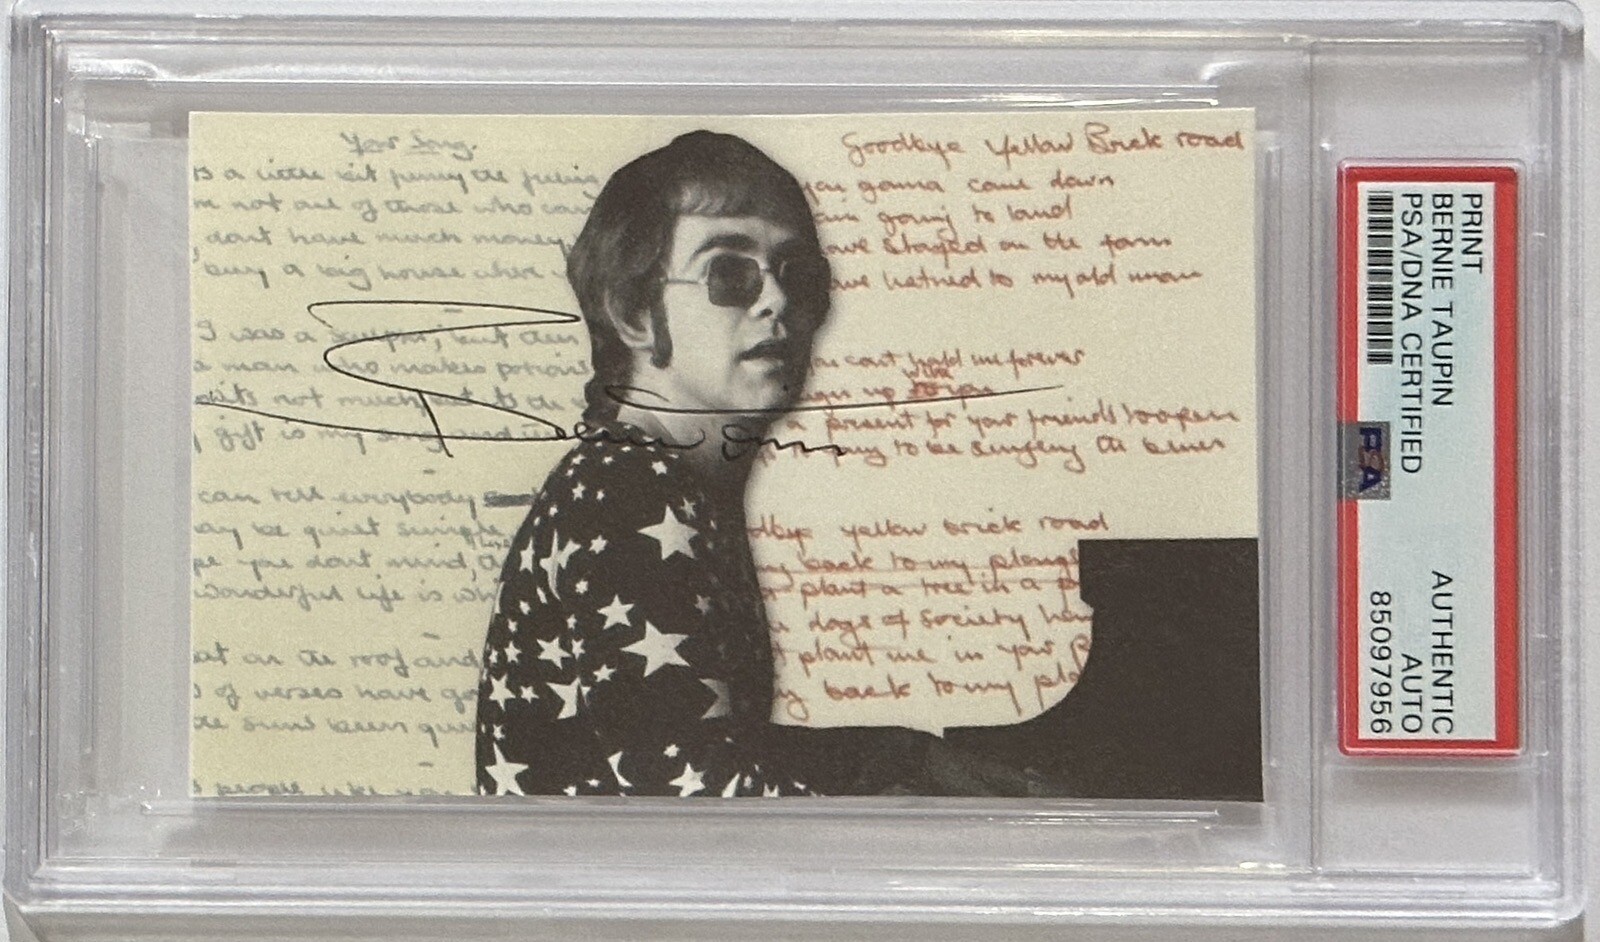 Your Song.
is a little bit funny the feeling
m not one of those who can
dont have much money
buy a big house where
I was a sculptor, but then
a man who makes potions
its not much but its the
gift is my song and
can tell everybody
ay be quiet simple
pe you dont mind,
wonderful life is wh
sat on the roof and
of verses have go
the suns been qui
people like you
Goodbye Yellow Brick road
you gonna come down
going to land
ave stayed on the farm
ave listned to my old man
you cant hold me forever
with
sign up for you
a present for your friends to open
to be singing the blues
dbye yellow brick road
my back to my plough
plant a tree in a
dogs of society how
plant me in your
my back to my plo
PRINT
BERNIE TAUPIN
PSA/DNA CERTIFIED
PSA
AUTHENTIC
AUTO
85097956